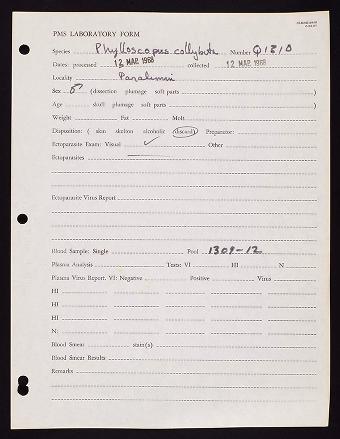 PMS LABORATORY FORM
Species Phylloscopus collybita Number Q1810
Dates: processed 12 MAR 1968 collected 12 MAR 1968
Locality Paralimni
Sex ♂ (dissection plumage soft parts )
Age skull plumage soft parts )
Weight Fat Molt
Disposition: ( skin skelton alcoholic discard) Preparator:
Ectoparasite Exam: Visual ✓ Other
Ectoparasites
Ectoparasite Virus Report
Blood Sample: Single Pool 1309-12
Plasma Analysis Tests: VI HI N
Plasma Virus Report. VI: Negative Positive Virus
HI
HI
HI
N:
Blood Smear stain(s)
Blood Smear Results
Remarks